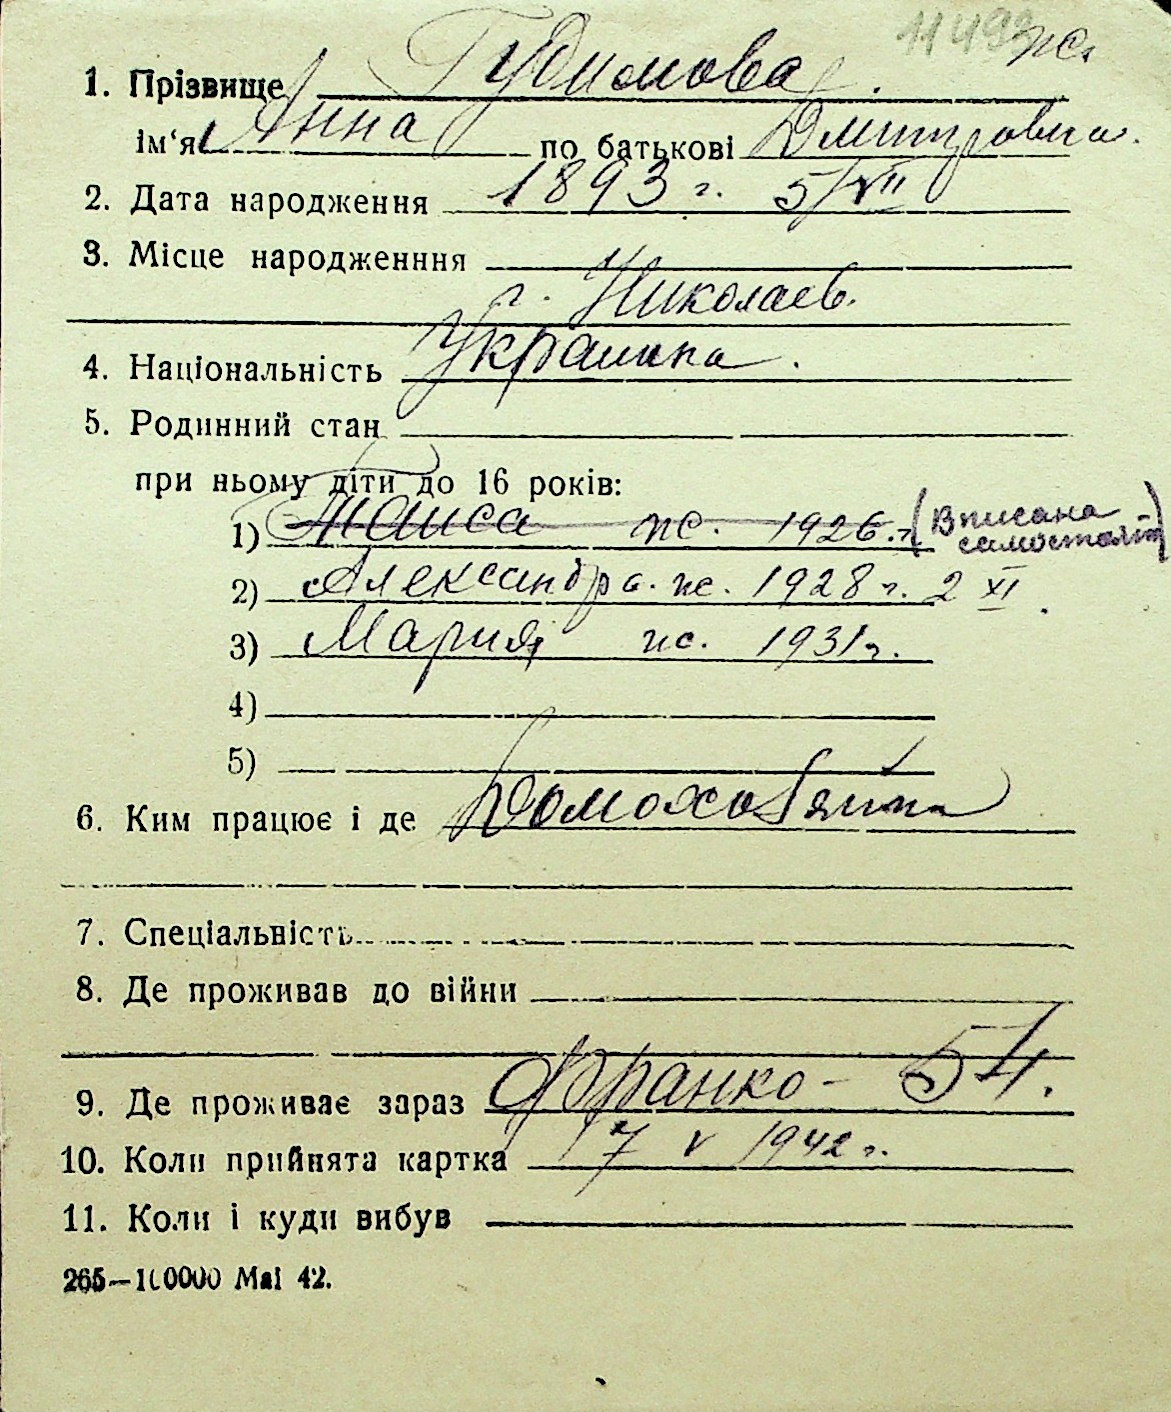 11493 ж.
1. Прізвище Гудимова.
ім'я Анна по батькові Дмитровна.
2. Дата народження 1893 г. 5/VII
3. Місце народженння
г. Николаев.
4. Національність Украинка.
5. Родинний стан
при ньому діти до 16 років:
1) Таиса ж. 1926.г. (Вписана самостоят)
2) Александра. ж. 1928 г. 2 XI.
3) Мария ж. 1931 г.
4)
5)
6. Ким працює і де Домохозяйка
7. Спеціальність
8. Де проживав до війни
9. Де проживає зараз Франко - 54.
10. Коли прийнята картка 7 V 1942 г.
11. Коли і куди вибув
265—100000 Маі 42.